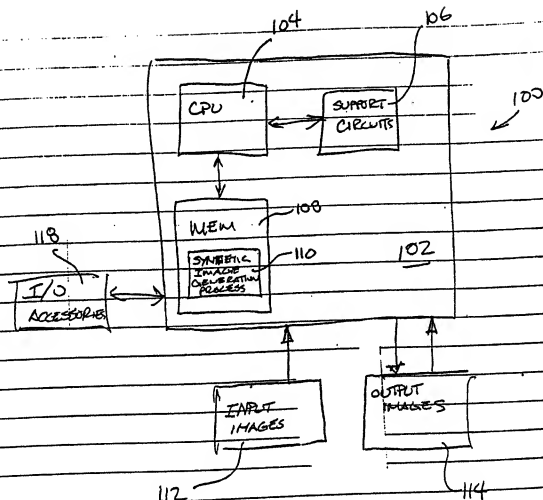 104
106
100
CPU
SUPPORT
CIRCUITS
MEM
108
SYNTHETIC
IMAGE
GENERATION
PROCESS
110
102
118
I/O
ACCESSORIES
INPUT
IMAGES
OUTPUT
IMAGES
112
114